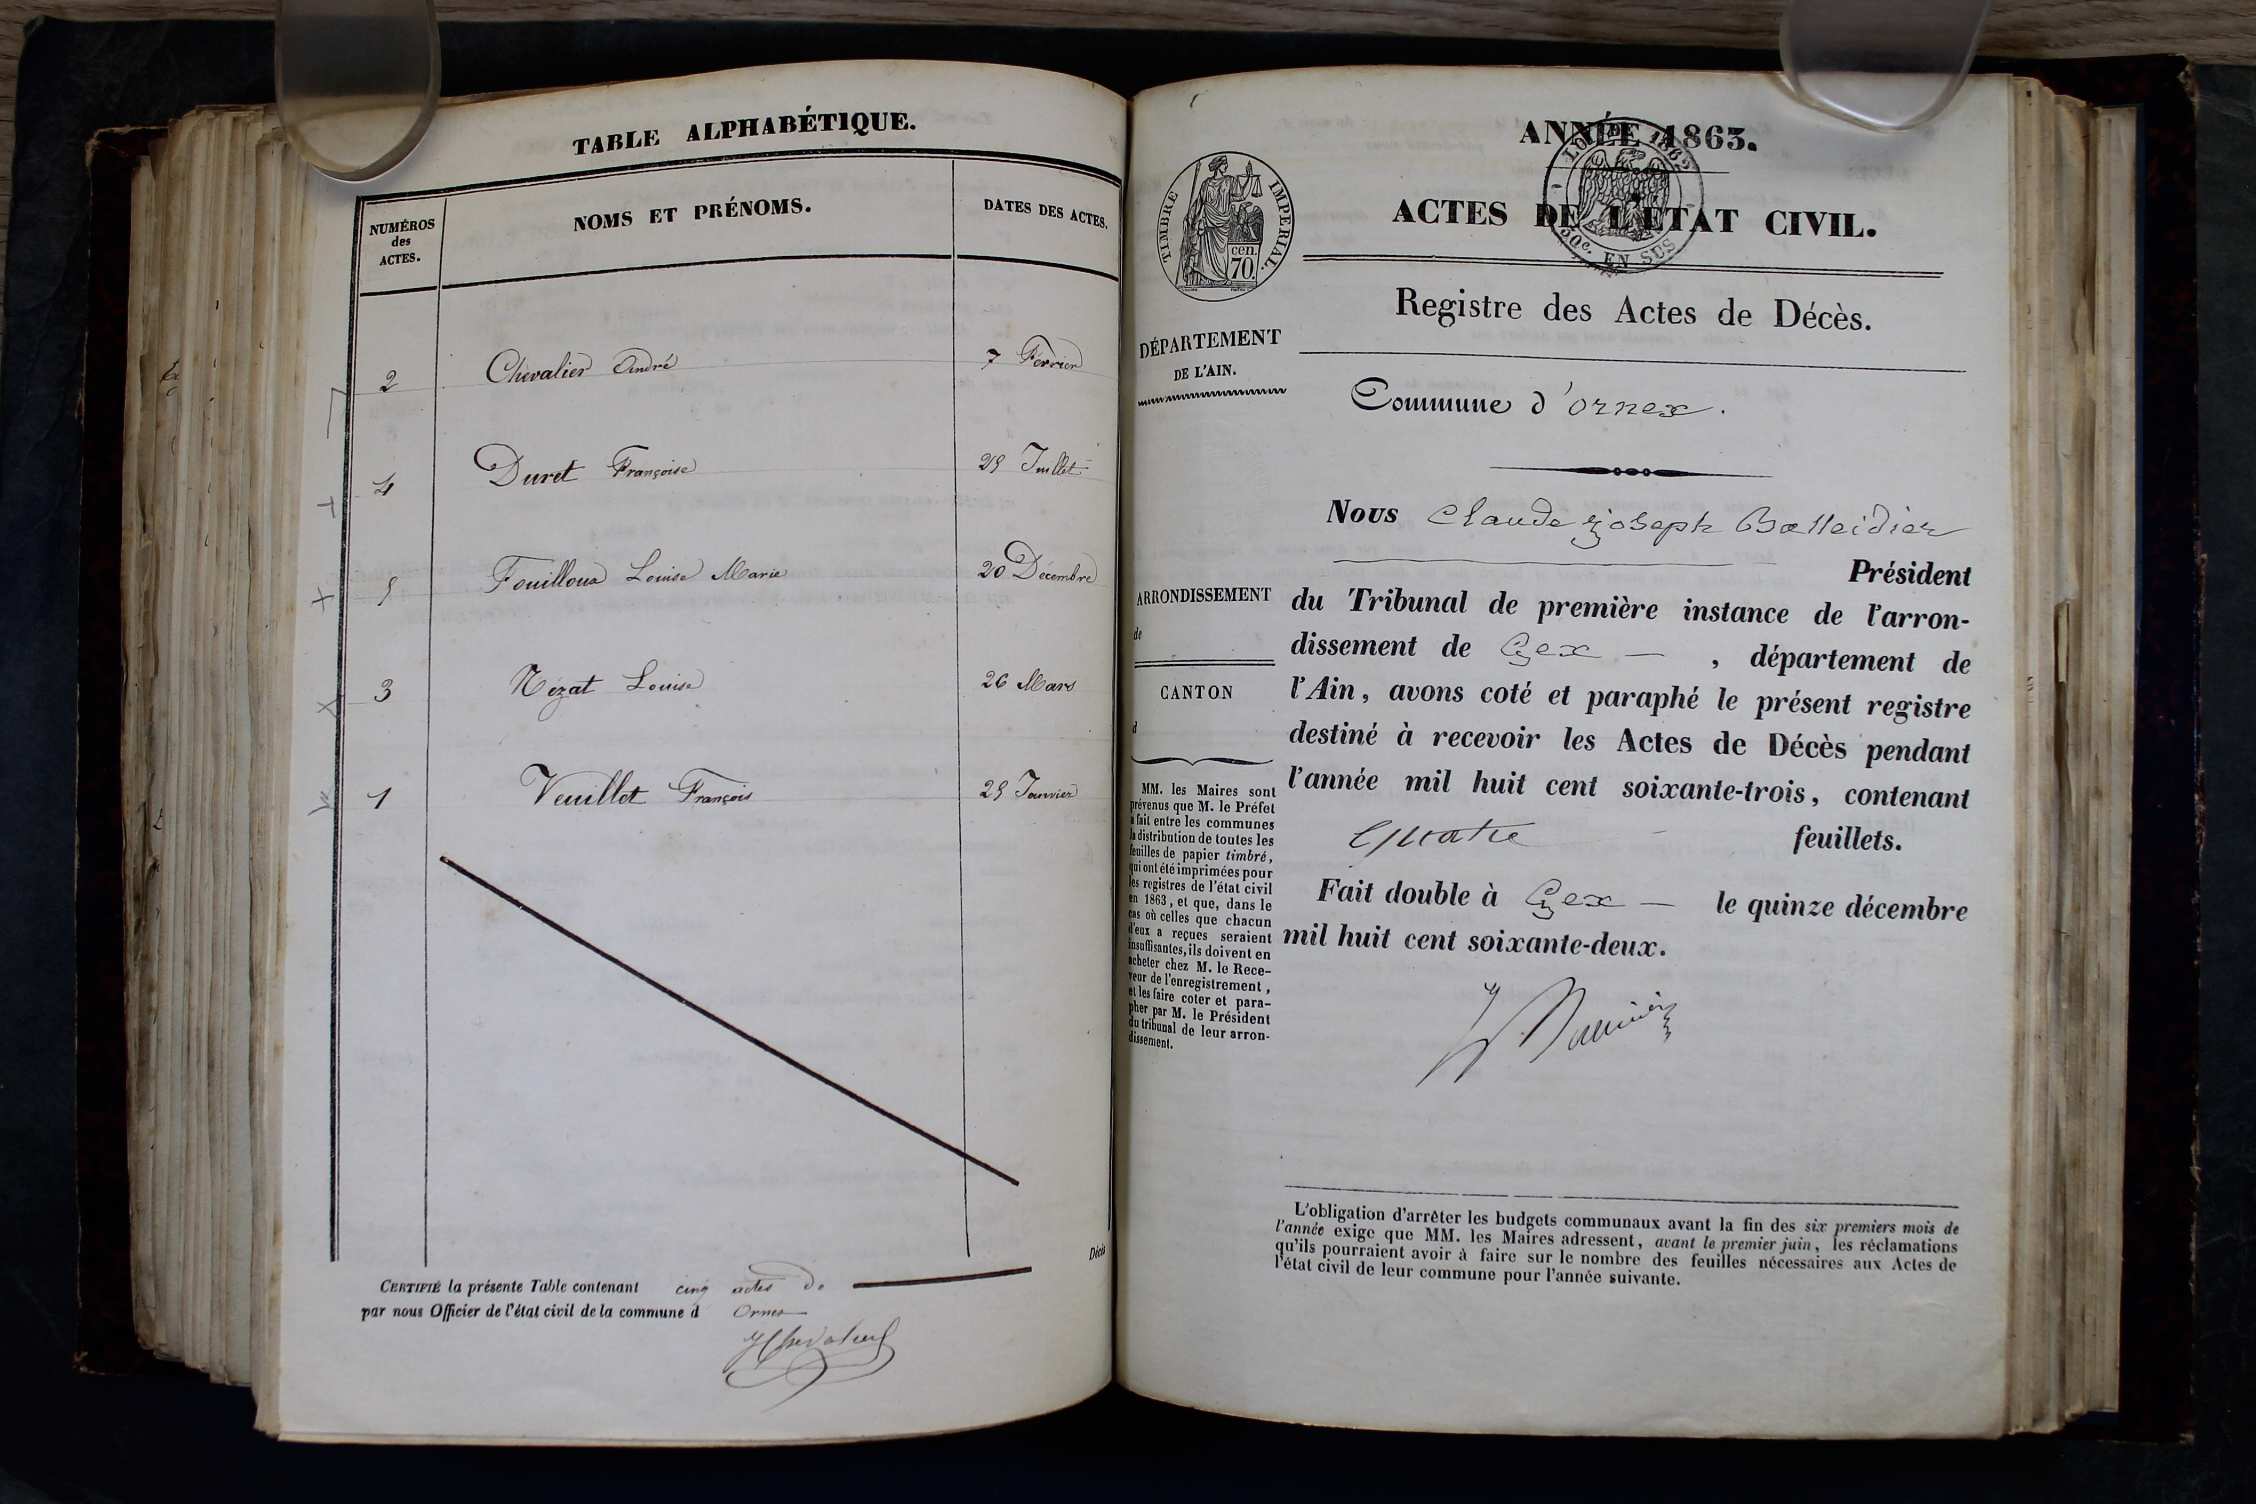 TABLE ALPHABÉTIQUE.
NUMÉROS
des
ACTES.
NOMS ET PRÉNOMS.
DATES DES ACTES.
2 Chevalier André 7 Février
4 Duret Françoise 25 Juillet
5 Fouilloux Louise Marie 20 Décembre
3 Nézat Louise 26 Mars
1 Veuillet François 25 Janvier
Décès
CERTIFIÉ la présente Table contenant cinq actes de
par nous Officier de l'état civil de la commune d Ornex
ANNÉE 1863.
ACTES DE L'ÉTAT CIVIL.
TIMBRE IMPERIAL.
cen.
70.
50c. EN SUS
Registre des Actes de Décès.
DÉPARTEMENT
DE L'AIN.
Commune d'Ornex.
ARRONDISSEMENT
de
CANTON
d
MM. les Maires sont
prévenus que M. le Préfet
a fait entre les communes
la distribution de toutes les
feuilles de papier timbré,
qui ont été imprimées pour
les registres de l'état civil
en 1863, et que, dans le
cas où celles que chacun
d'eux a reçues seraient
insuffisantes, ils doivent en
acheter chez M. le Rece-
veur de l'enregistrement,
et les faire coter et para-
pher par M. le Président
du tribunal de leur arron-
dissement.
Nous Claude Joseph Balleidier
Président
du Tribunal de première instance de l'arron-
dissement de Gex — , département de
l'Ain, avons coté et paraphé le présent registre
destiné à recevoir les Actes de Décès pendant
l'année mil huit cent soixante-trois, contenant
quatre feuillets.
Fait double à Gex — le quinze décembre
mil huit cent soixante-deux.
L'obligation d'arrêter les budgets communaux avant la fin des six premiers mois de
l'année exige que MM. les Maires adressent, avant le premier juin, les réclamations
qu'ils pourraient avoir à faire sur le nombre des feuilles nécessaires aux Actes de
l'état civil de leur commune pour l'année suivante.